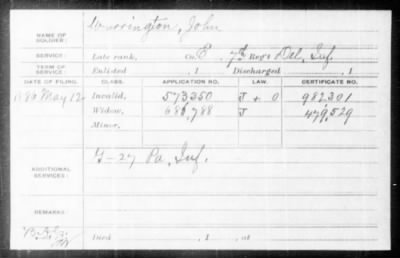 Warrington, John
NAME OF SOLDIER:
SERVICE: Late rank, Co. E, 7th Reg't Del. Inf.
TERM OF SERVICE: Enlisted , 1 Discharged , 1
DATE OF FILING. CLASS. APPLICATION NO. LAW. CERTIFICATE NO.
May 12 Invalid, 573,350 J + O 982,301
Widow, 681,788 J 479,529
Minor,
ADDITIONAL SERVICES: G-27 Pa. Inf.
REMARKS:
Died , 1 , at